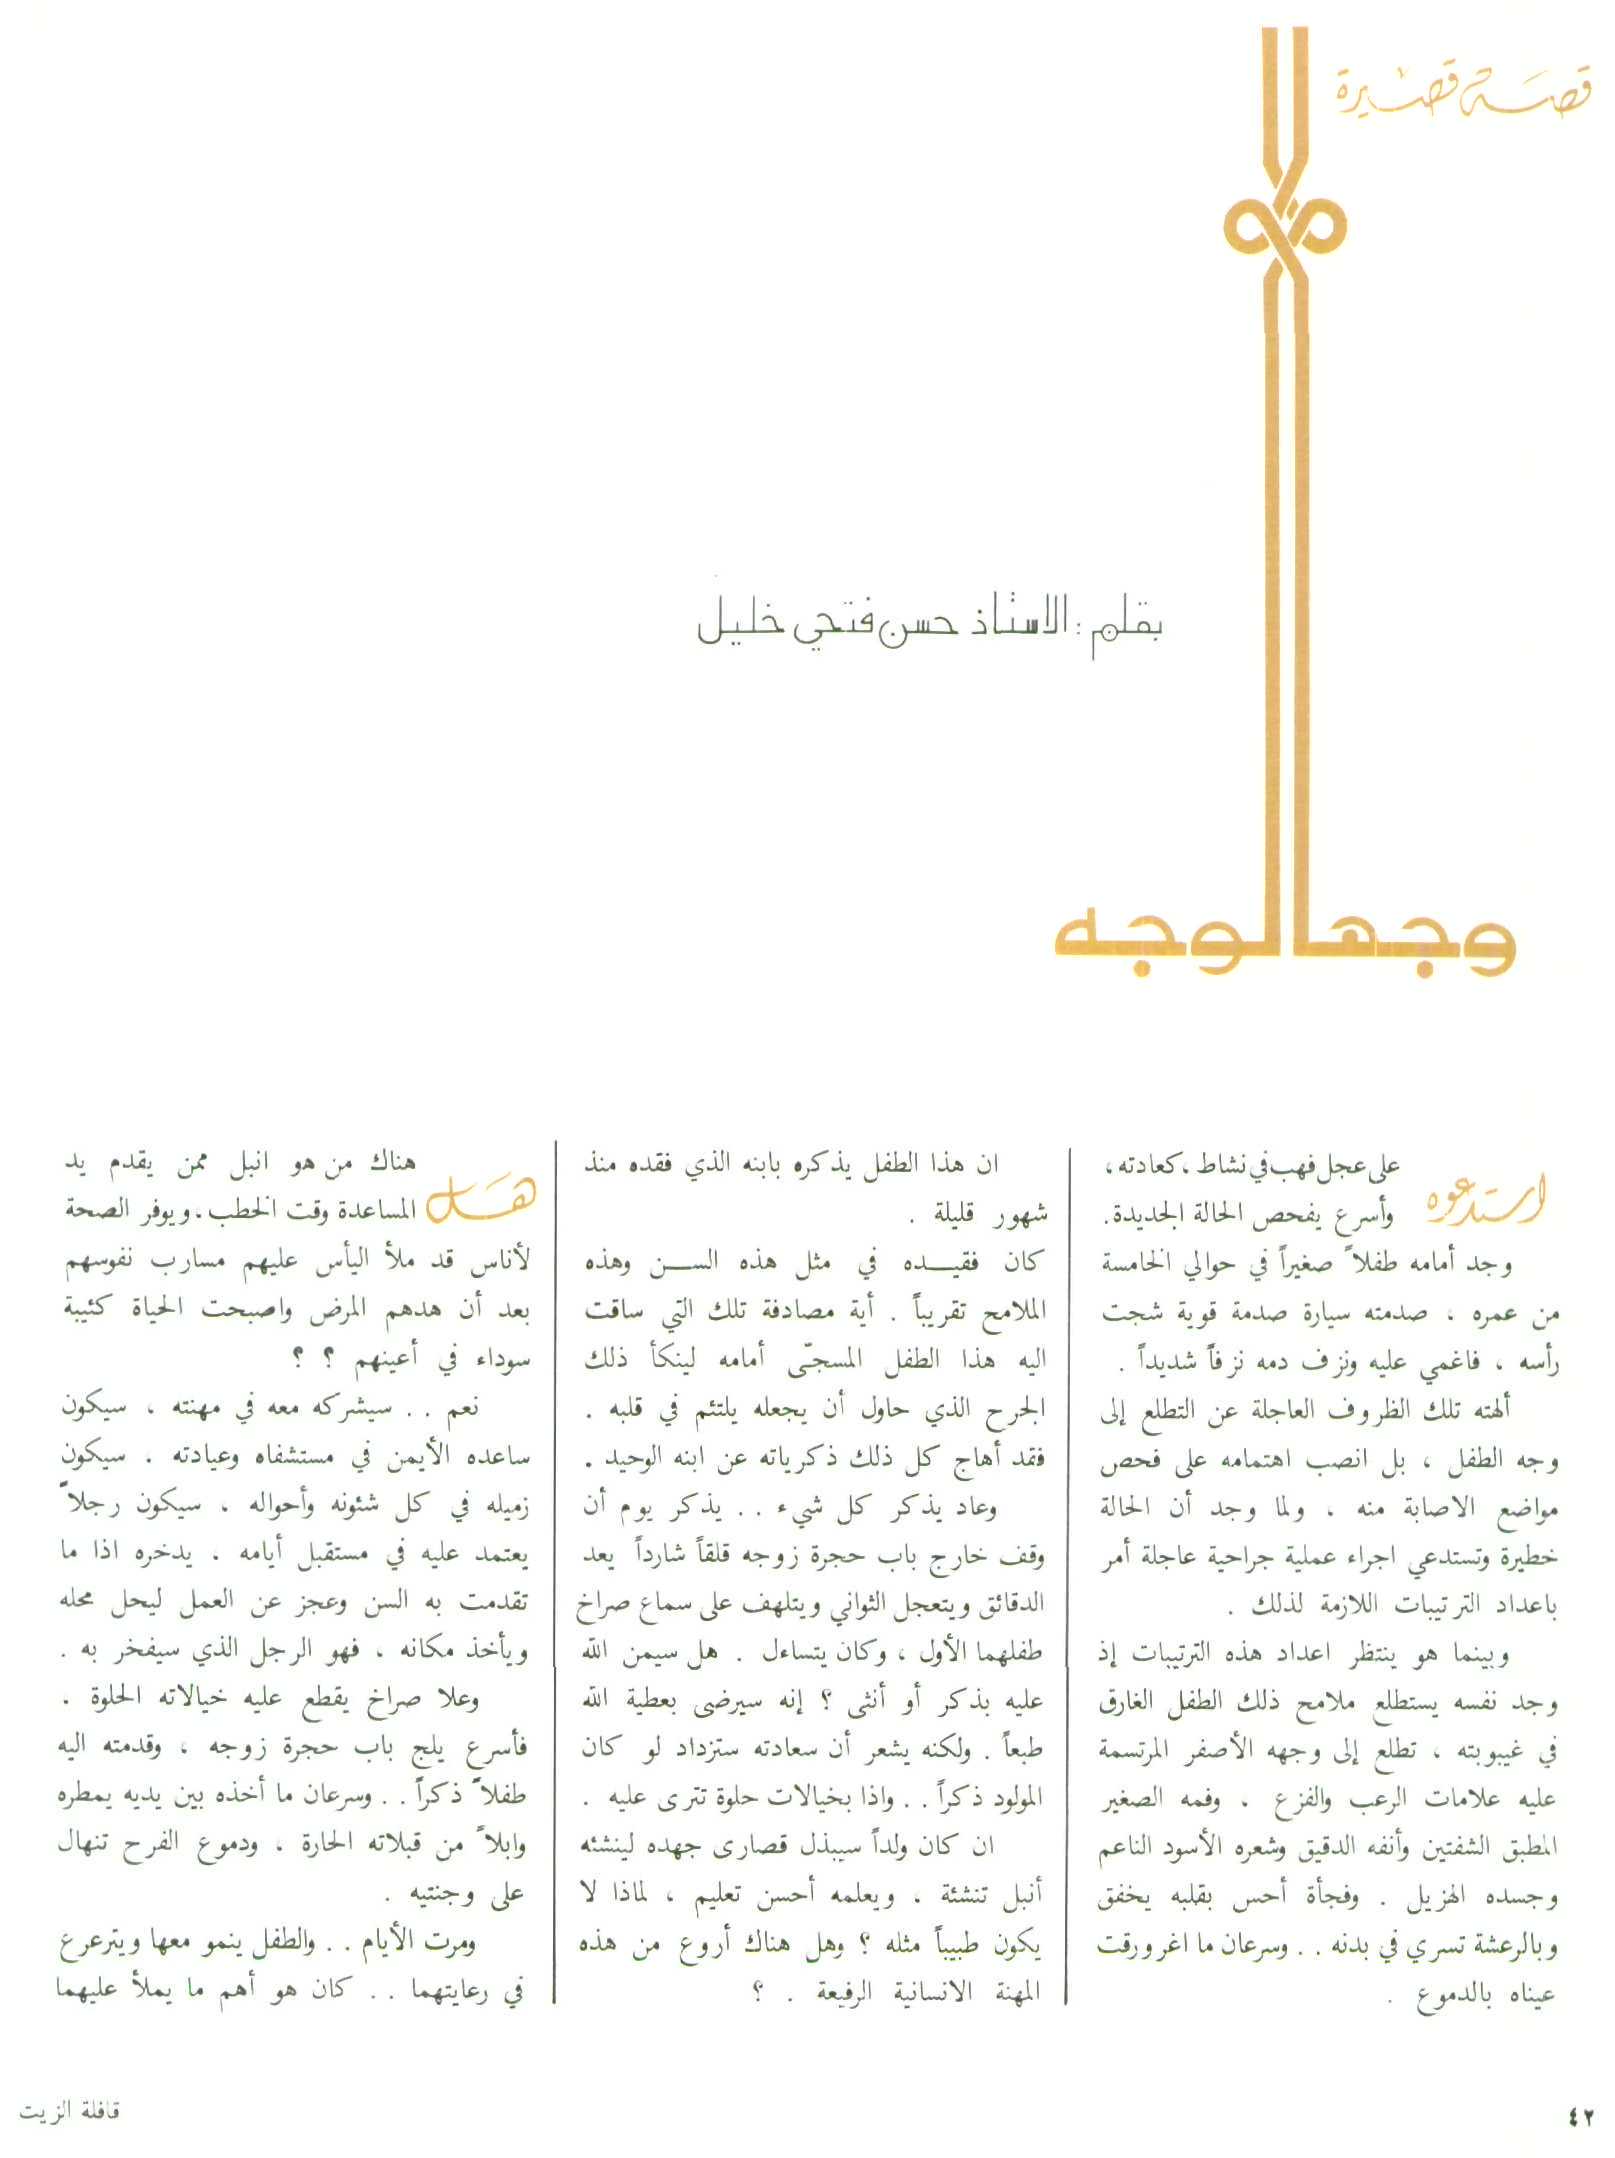 قصة قصيرة
بقلم : الاستاذ حسن فتحي خليل
وجها لوجه
استدعوه على عجل فهب في نشاط ، كعادته ،
وأسرع يفحص الحالة الجديدة .
وجد أمامه طفلاً صغيراً في حوالي الخامسة
من عمره ، صدمته سيارة صدمة قوية شجت
رأسه ، فاغمي عليه ونزف دمه نزفاً شديداً .
ألهته تلك الظروف العاجلة عن التطلع إلى
وجه الطفل ، بل انصب اهتمامه على فحص
مواضع الاصابة منه ، ولما وجد أن الحالة
خطيرة وتستدعي اجراء عملية جراحية عاجلة أمر
باعداد الترتيبات اللازمة لذلك .
وبينما هو ينتظر اعداد هذه الترتيبات إذ
وجد نفسه يستطلع ملامح ذلك الطفل الغارق
في غيبوبته ، تطلع إلى وجهه الأصفر المرتسمة
عليه علامات الرعب والفزع ، وفمه الصغير
المطبق الشفتين وأنفه الدقيق وشعره الأسود الناعم
وجسده الهزيل . وفجأة أحس بقلبه يخفق
وبالرعشة تسري في بدنه . . وسرعان ما اغرورقت
عيناه بالدموع .
ان هذا الطفل يذكره بابنه الذي فقده منذ
شهور قليلة .
كان فقيده في مثل هذه السن وهذه
الملامح تقريباً . أية مصادفة تلك التي ساقت
اليه هذا الطفل المسجّى أمامه لينكأ ذلك
الجرح الذي حاول أن يجعله يلتئم في قلبه .
فقد أهاج كل ذلك ذكرياته عن ابنه الوحيد .
وعاد يذكر كل شيء . . يذكر يوم أن
وقف خارج باب حجرة زوجه قلقاً شارداً يعد
الدقائق ويتعجل الثواني ويتلهف على سماع صراخ
طفلهما الأول ، وكان يتساءل . هل سيمن الله
عليه بذكر أو أنثى ؟ إنه سيرضى بعطية الله
طبعاً . ولكنه يشعر أن سعادته ستزداد لو كان
المولود ذكراً . . واذا بخيالات حلوة تترى عليه .
ان كان ولداً سيبذل قصارى جهده لينشئه
أنبل تنشئة ، ويعلمه أحسن تعليم ، لماذا لا
يكون طبيباً مثله ؟ وهل هناك أروع من هذه
المهنة الانسانية الرفيعة . ؟
هل هناك من هو انبل ممن يقدم يد
المساعدة وقت الخطب . ويوفر الصحة
لأناس قد ملأ اليأس عليهم مسارب نفوسهم
بعد أن هدهم المرض واصبحت الحياة كئيبة
سوداء في أعينهم ؟ ؟
نعم . . سيشركه معه في مهنته ، سيكون
ساعده الأيمن في مستشفاه وعيادته . سيكون
زميله في كل شئونه وأحواله ، سيكون رجلاً
يعتمد عليه في مستقبل أيامه ، يدخره اذا ما
تقدمت به السن وعجز عن العمل ليحل محله
ويأخذ مكانه ، فهو الرجل الذي سيفخر به .
وعلا صراخ يقطع عليه خيالاته الحلوة .
فأسرع يلج باب حجرة زوجه ، وقدمته اليه
طفلاً ذكراً . . وسرعان ما أخذه بين يديه يمطره
وابلاً من قبلاته الحارة ، ودموع الفرح تنهال
على وجنتيه .
ومرت الأيام . . والطفل ينمو معها ويترعرع
في رعايتهما . . كان هو أهم ما يملأ عليهما
٤٢
قافلة الزيت